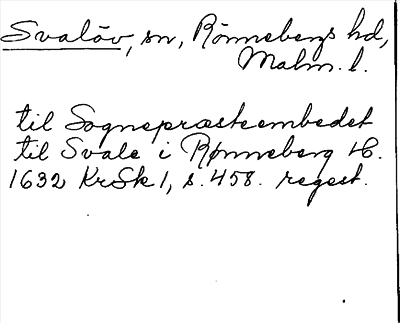 Svalöv, sn, Rönnebergs hd,
Malm. l.
til Sognepræsteembedet
til Svale i Rønneberg H.
1632 KrSk 1, s. 458. regest.